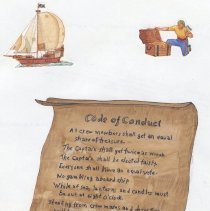 Code of Conduct
All crew members shall get an equal
share of treasure.
The Captain shall get twice as much
The Captain shall be elected
Everyone shall have an equal vote.
No gambling aboard ship
lanterns and candles must
be out at eight o'clock.
Stealing from crew